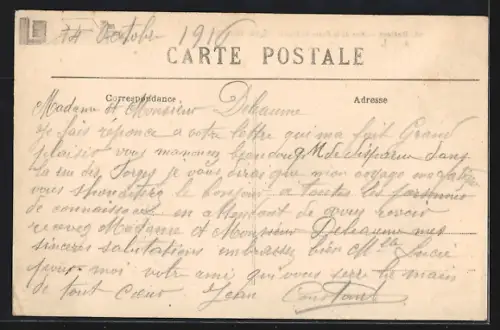 14 Octobre 1916
CARTE POSTALE
Correspondance Adresse
Madame et Monsieur Deheaume
Je fais réponce a votre lettre qui ma fait Grand
plaisir vous manoncez
la ru des Forges je vous dirai que mon voyage
vous le bonjour a toutes les
de connaissance en attendant de vous revoir
recevez Madame et Monsieur Deheaume mes
sincères salutations embrassez bien Mlle Lucie
pour moi votre ami qui vous serre la main
de tout cœur Jean Constant